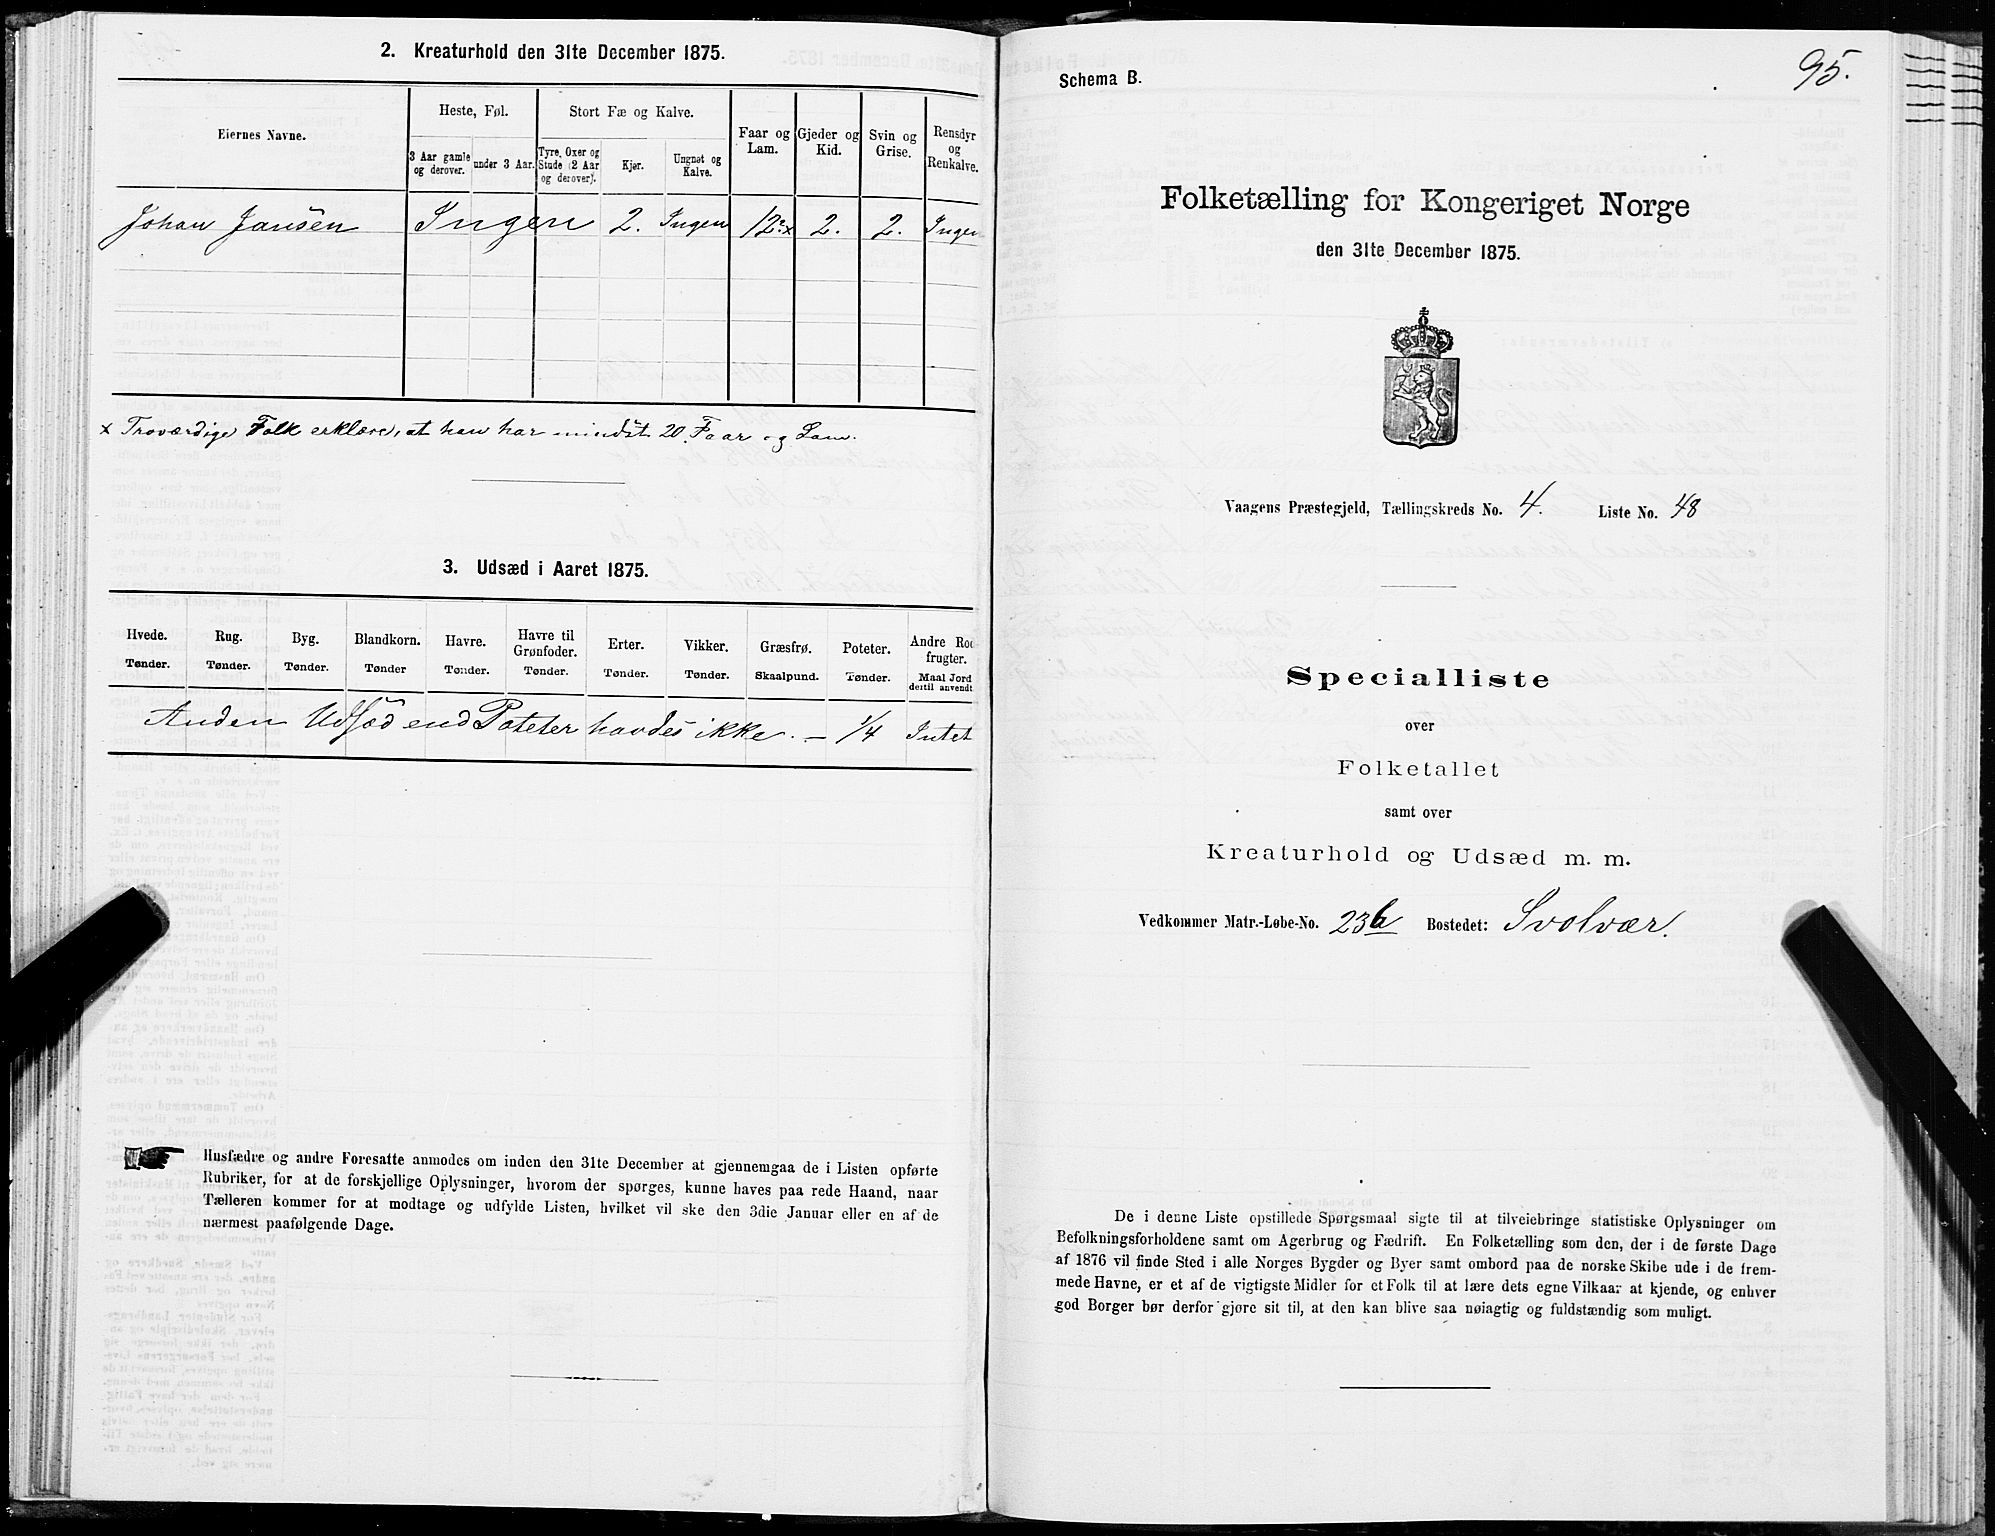 2. Kreaturhold den 31te December 1875.
Eiernes Navne.
Heste, Føl.
Stort Fæ og Kalve.
Faar og Lam.
Gjeder og Kid.
Svin og Grise.
Rensdyr og Renkalve.
3 Aar gamle og derover.
under 3 Aar.
Tyre, Oxer og Stude (2 Aar og derover).
Kjør.
Ungnøt og Kalve.
Johan Jansen Ingen 2. Ingen 12 x 2. 2. Ingen
x Troværdige Folk erklære, at han har mindst 20 Faar og Lam.
3. Udsæd i Aaret 1875.
Hvede. Rug. Byg. Blandkorn. Havre. Havre til Grønfoder. Erter. Vikker. Græsfrø. Poteter. Andre Rod frugter.
Tønder. Tønder. Tønder. Tønder Tønder. Tønder. Tønder. Tønder. Skaalpund. Tønder. Maal Jord dertil anvendt.
Anden Udsæd end Poteter havdes ikke. – 1/4 Intet
Husfædre og andre Foresatte anmodes om inden den 31te December at gjennemgaa de i Listen opførte
Rubriker, for at de forskjellige Oplysninger, hvorom der spørges, kunne haves paa rede Haand, naar
Tælleren kommer for at modtage og udfylde Listen, hvilket vil ske den 3die Januar eller en af de
nærmest paafølgende Dage.
95.
Schema B.
Folketælling for Kongeriget Norge
den 31te December 1875.
Vaagens Præstegjeld, Tællingskreds No. 4. Liste No. 48
Specialliste
over
Folketallet
samt over
Kreaturhold og Udsæd m. m.
Vedkommer Matr.-Løbe-No. 23b Bostedet: Svolvær.
De i denne Liste opstillede Spørgsmaal sigte til at tilveiebringe statistiske Oplysninger om
Befolkningsforholdene samt om Agerbrug og Fædrift. En Folketælling som den, der i de første Dage
af 1876 vil finde Sted i alle Norges Bygder og Byer samt ombord paa de norske Skibe ude i de frem-
mede Havne, er et af de vigtigste Midler for et Folk til at lære dets egne Vilkaar at kjende, og enhver
god Borger bør derfor gjøre sit til, at den kan blive saa nøiagtig og fuldstændig som muligt.